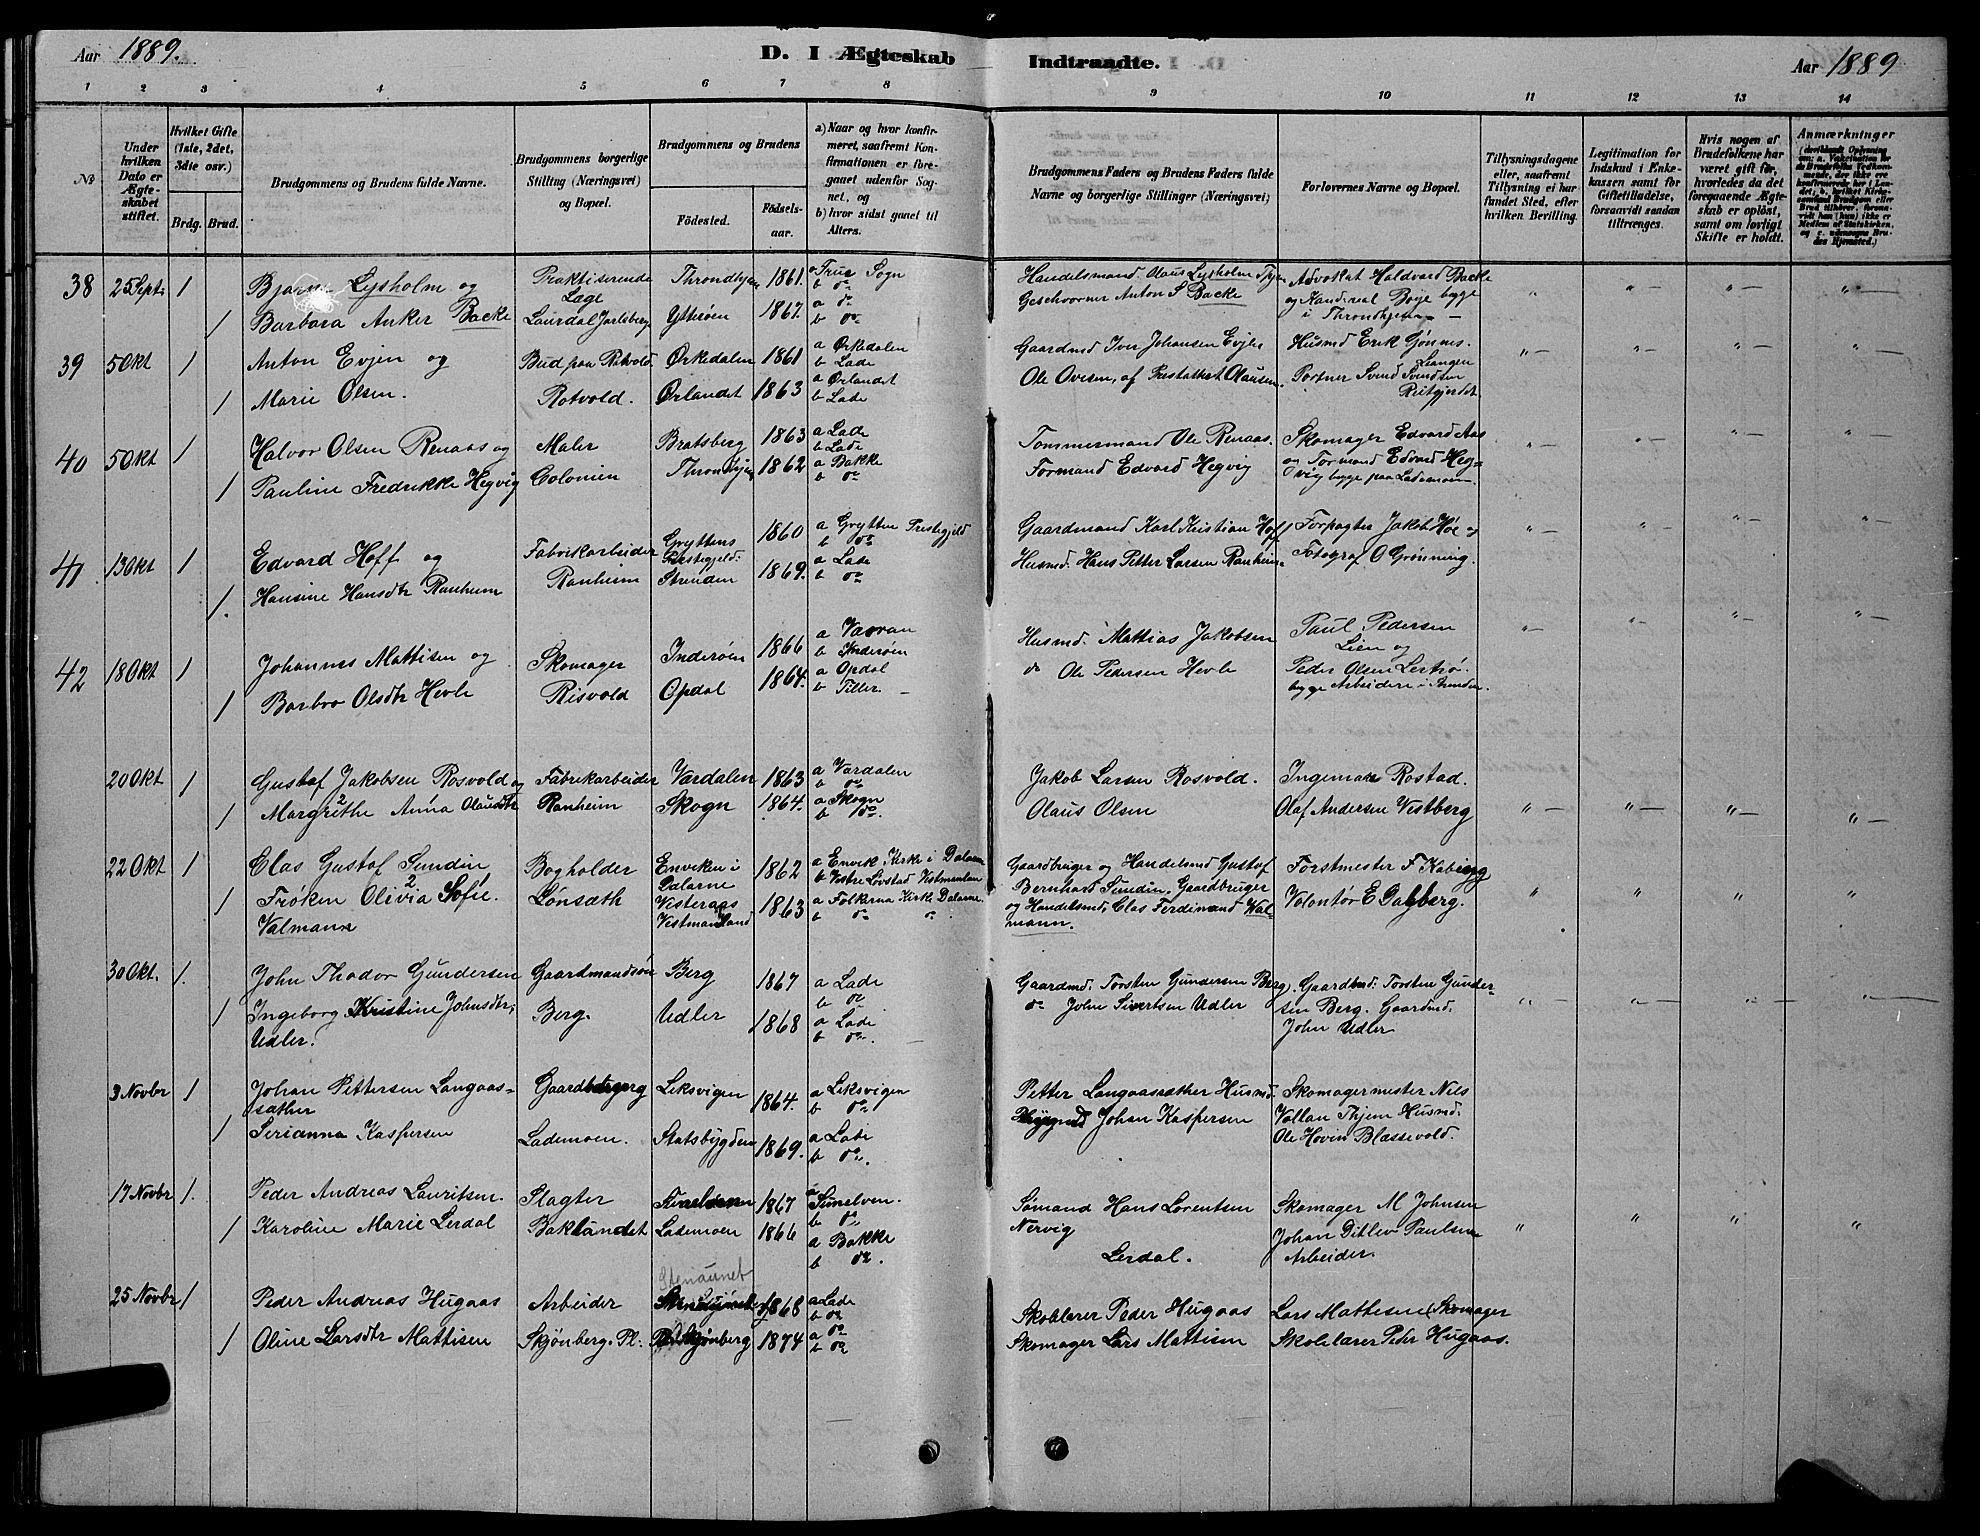 Aar 1889.
D. I Ægteskab Indtraadte.
Aar 1889
1 2 3 4 5 6 7 8 9 10 11 12 13 14
No.
Under hvilken Dato er Ægteskabet stiftet.
Hvilket Gifte (1ste, 2det, 3die osv.)
Brdg. Brud.
Brudgommens og Brudens fulde Navne.
Brudgommens borgerlige Stilling (Næringsvei) og Bopæl.
Brudgommens og Brudens
Fødested.
Fødselsaar.
a) Naar og hvor konfirmeret, saafremt Konfirmationen er foregaaet udenfor Sognet, og
b) hvor sidst gaaet til Alters.
Brudgommens Faders og Brudens Faders fulde Navne og borgerlige Stillinger (Næringsvei)
Forlovernes Navne og Bopæl.
Tillysningsdagene eller, saafremt Tillysning ei har fundet Sted, efter hvilken Bevilling.
Legitimation for Indskud i Enkekassen samt for Giftetilladelse, forsaavidt saadan tiltrænges.
Hvis nogen af Brudefolkene har været gift før, hvorledes da det foregaaende Ægteskab er opløst, samt om lovligt Skifte er holdt.
Anmærkninger
38 25 Septr 1 Lysholm og Praktiserende Læge Throndhjem 1861. a Frue Sogn b do Handelsmand Olaus Lysholm Thjem Advokat Haldvard Backe
1 Barbara Anker Backe Laurdal Jarlsberg Ytterøen 1867. a do b do Geschvorner Anton S Backe og Kand. Boye bygge i Throndhjem
39 5 Okt 1 Anton Evjen og Bud paa Rotvold Ørkedalen 1861 a Ørkedalen b Lade Gaardmd Iver Johansen Evjen Husmd Erik Gønnes. Leangen
1 Marie Olsen. Rotvold. Ørlandet 1863 a Ørlandet b Lade Ole Ovesen, af Olausen. Portner Svend Svendsen Reitgjerdet
40 5 Okt 1 Halvor Olsen Renaas og Maler Bratsberg 1863 a Lade b Lade Tømmermand Ole Renaas. Skomager Edvard Aas
1 Pauline Fredrikke Hegvig Colonien Throndhjem 1862 a Bakke b do Formand Edvard Hegvig og Formand Edvard Hegvig bygge paa Lademoen
41. 13 Okt 1 Edvard Hoff og Fabrikarbeider Gryttens Præstegjeld. 1860 a Grytten Prestegjeld b do Gaardmand Karl Kristian Hoff Forpagter Jakob Høe og
1. Hansine Hansdtr Ranheim Ranheim Strinden 1869. a Lade b do Husmd. Hans Petter Larsen Ranheim Fotograf O Grønning.
42 18 Okt 1 Johannes Mattisen og Skomager Inderøen 1866 a b Inderøen Husmd. Mattias Jakobsen Paul Pedersen Lien og
1 Barbro Olsdtr Hevle Risvold Opdal 1864. a Opdal b Tiller. do Ole Pedersen Hevle Peder Olsen bygge Arbeidere i Strinden.
20 Okt 1 Gustaf Jakobsen Rosvold og Fabrikarbeider Værdalen 1863 a Værdalen b do Jakob Larsen Rosvold. Rostad.
1 Margrethe Anna Olausdtr Ranheim Skogn 1864. a Skogn b do. Olaus Olsen Olaf Andersen Vestberg
22 Okt 1 Clas Gustaf Sundin Bogholder Enviken i Dalarne 1862 a Envik Kirke i Dalarne b Vestre Løvstad Vestmanland Gaardbruger og Handelsmd Gustaf Bernhard Sundin. Forstmester F Kabing
1 Frøken Olivia Sofie. Valmann Lønsæth Vesteraas Vestmanland 1863 a Folkerna Kirke Dalarne. b do do Gaardbruger og Handelsmd, Clas Ferdinand Walmann. Volontør E Dahlberg.
30 Okt. 1. John Thodor Gundersen Gaardmandsøn Berg 1867 a Lade b do Gaardmd. Torsten Gundersen Berg. Gaardmd. Torsten Gundersen Berg.
1 Ingeborg Kristine Johnsdtr, Udler. Berg. Udler 1868 a Lade b do. do John Sivertsen Udler Gaardmd. John Udler
3 Novbr 1 Johan Pettersen Langaassæther Leksvigen 1864. a Leksvigen b do Petter Langaassæther Husmd Skomagermester Nils Vollan Thjem
1 Serianna Kaspersen Lademoen. Statsbygden 1869. a Lade b do. Johan Kaspersen Husmd. Ole Hovin Blæssevold.
17 Novbr 1. Peder Andreas Lauritsen. Slagter 1867 a Sunelven. b do Sømand Hans Lorentsen Nervig Skomager M Johnsen
1 Karoline Marie Lerdal Baklandet Lademoen 1866 a Bakke b do. Lerdal. Johan Ditlev Paulsen Arbeider.
Stenaunet
25 Novbr 1 Peder Andreas Hugaas Arbeider 1868 a Lade b do Skolelærer Peder Hugaas Lars Mattisen Skomager
1 Oline Larsdtr Mattisen Skjønberg. Pl. Skjønberg 1874 a do b do Skomager Lars Mattisen Skolelærer Petr Hugaas.